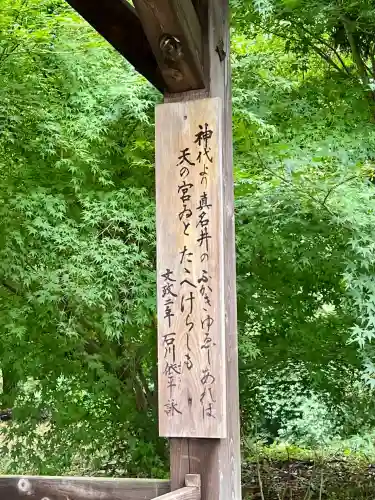 神代より真名井のふかきゆゑあれは
天の宮ゐとたへけらしも
文政二年 石川依平 詠